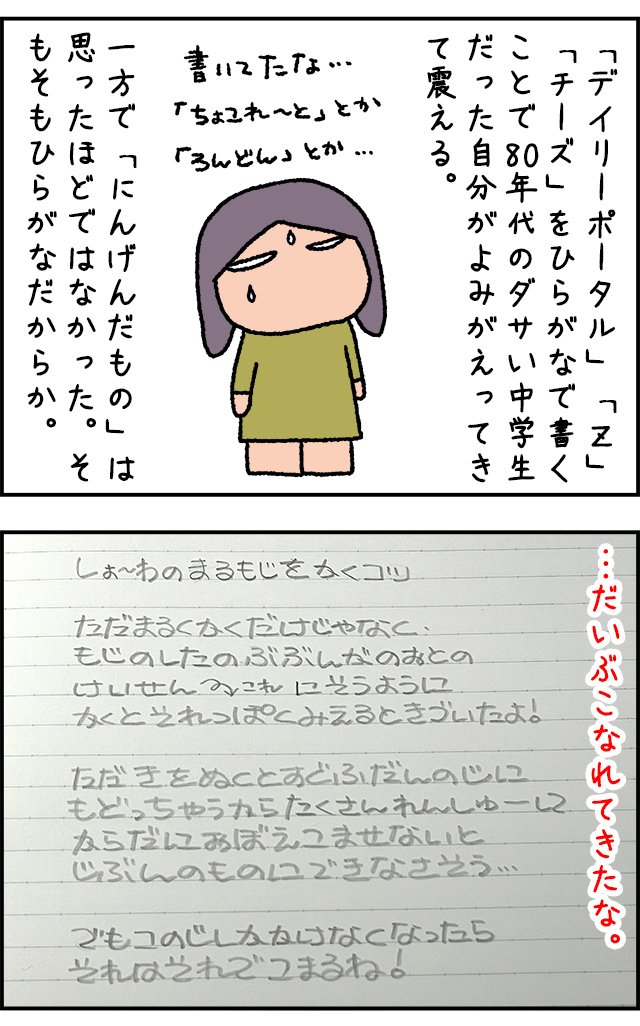 「デイリーポータル」「Z」
「チーズ」をひらがなで書く
ことで80年代のダサい中学生
だった自分がよみがえってき
て震える。
書いてたな…
「ちょこれ〜と」とか
「ろんどん」とか…
一方で「にんげんだもの」は
思ったほどではなかった。そ
もそもひらがなだからか。
…だいぶこなれてきたな。
しょ〜わのまるもじをかくコツ
ただまるくかくだけじゃなく、
もじのしたのぶぶんがのおとの
けいせん これ にそうように
かくとそれっぽくみえるときづいたよ!
ただきをぬくとすぐふだんのじに
もどっちゃうからたくさんれんしゅーして
からだにおぼえこませないと
じぶんのものにできなさそう…
でもこのじしかかけなくなったら
それはそれでこまるね!